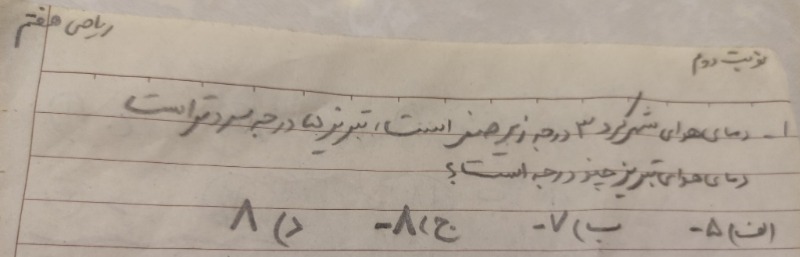 ریاضی هفتم
نوبت دوم
۱- دمای هوای شهرکرد ۳ درجه زیر صفر است، تبریز ۵ درجه سردتر است
دمای هوای تبریز چند درجه است؟
الف) ۵- ب) ۷- ج) ۸- د) ۸